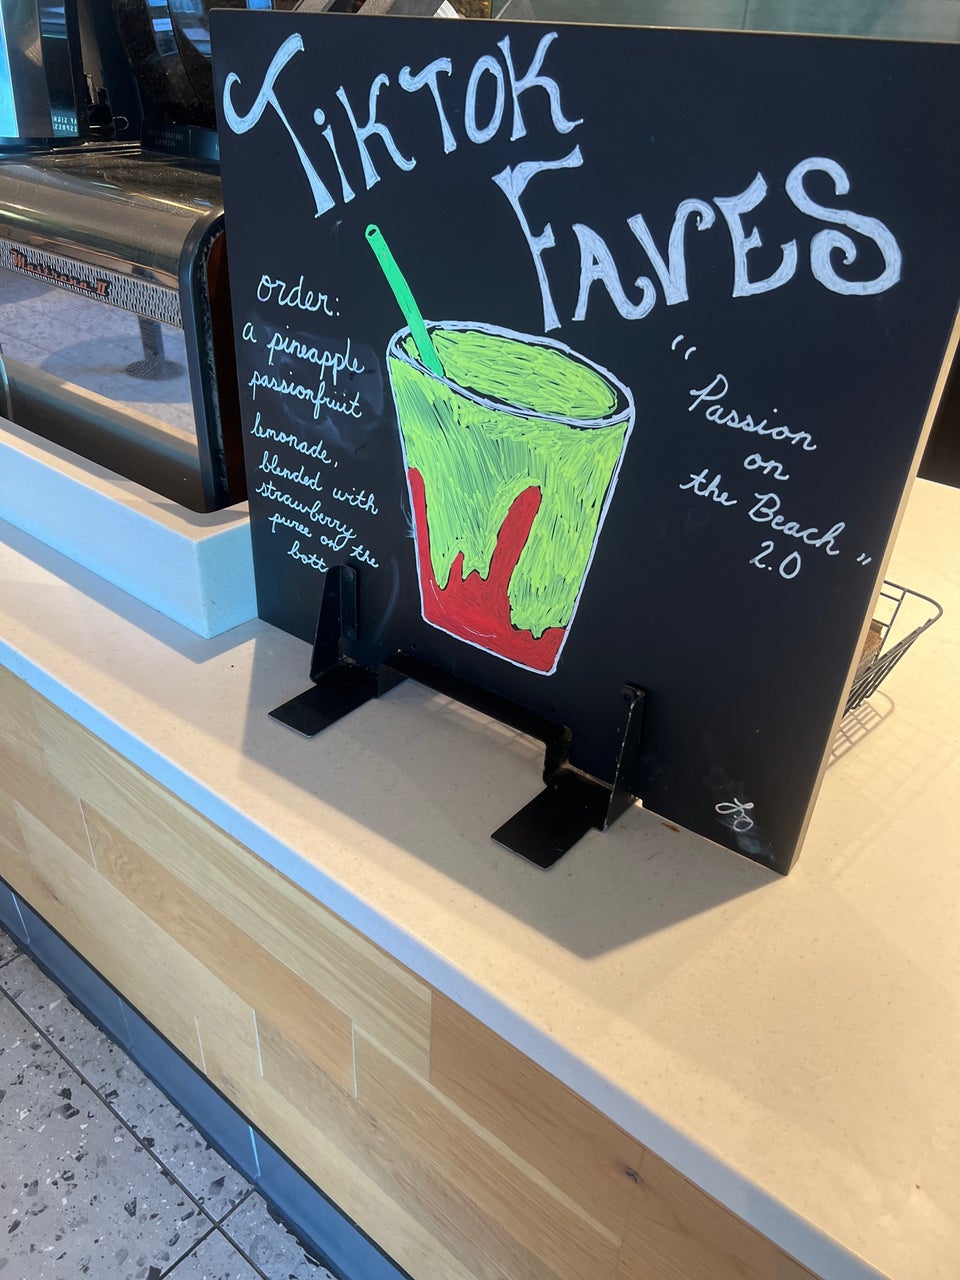 TikTok
FAVES
order:
a pineapple
passionfruit
lemonade,
blended with
strawberry
puree on the
"Passion
on
the Beach"
2.0
Mastrena II